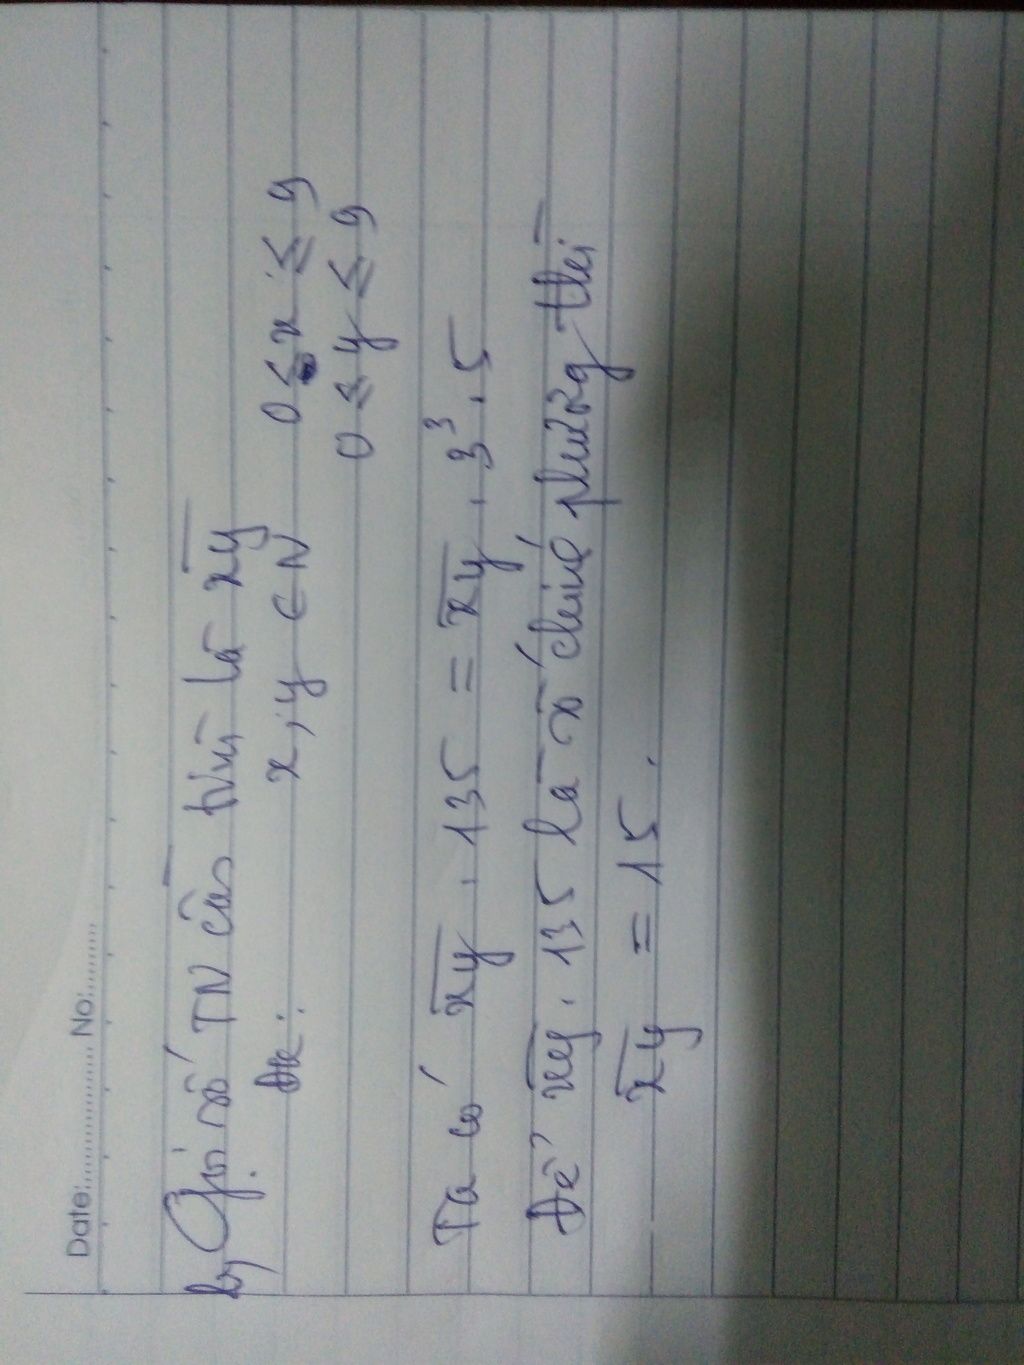 Date:............... No:.........
b, Gọi số TN cần tìm là x̅y̅
ĐK: x, y ∈ N 0 ≤ x ≤ 9
0 ≤ y ≤ 9
Ta có x̅y̅ . 135 = x̅y̅ . 3³ . 5
Để x̅y̅ . 135 là số chính phương thì
x̅y̅ = 15 .